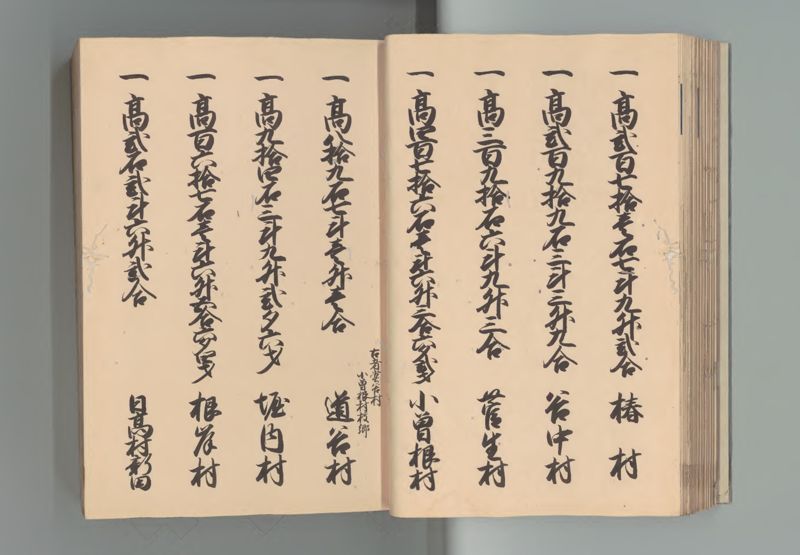 一 高弐百七拾壱石七斗九升弐合 椿村
一 高弐百九拾九石三斗三升九合 谷中村
一 高三百九拾石六斗九升三合 菅生村
一 高四百七拾六石壱斗六升三合六夕弐才 小曽根村
古者堂谷村
小曽根村枝郷
一 高八拾九石七斗壱升壱合 道谷村
一 高九拾四石三斗九升弐夕六才 堀内村
一 高百六拾七石壱斗六升六合六夕四才 根岸村
一 高弐石弐斗六升弐合 日高村新田